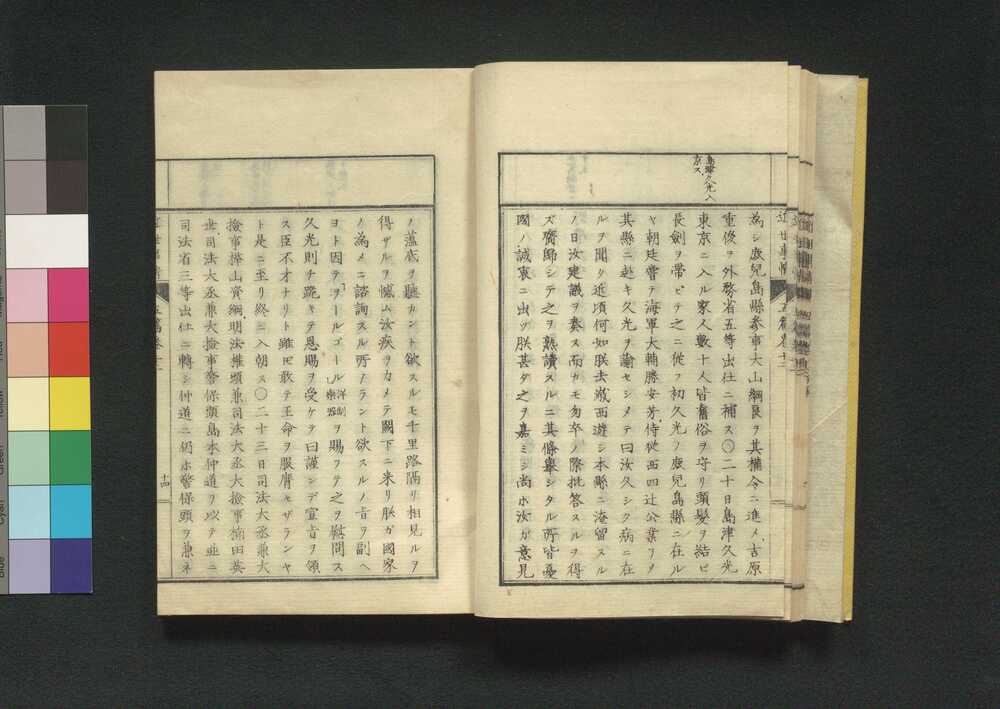 島津久光入
京ス
為シ鹿兒島縣參事大山綱良ヲ其權令ニ進メ吉原
重俊ヲ外務省五等出仕ニ補ス〇二十日島津久光
東京ニ入ル家人數十人皆舊俗ヲ守リ頭髮ヲ結ビ
長劍ヲ帶ビテ之ニ從フ初久光ノ鹿兒島縣ニ在ル
ヤ朝廷嘗テ海軍大輔勝安芳侍從西四辻公業ヲメ
其縣ニ赴キ久光ヲ諭セシメテ曰汝久シク病ニ在
ルヲ聞リ近頃何如朕去歳西遊シ本縣ニ淹留スル
ノ日汝建議ヲ奏ス而カモ匆卒ノ際批答スルヲ得
ズ齎歸シテ之ヲ熟讀スルニ其條擧シタル所皆憂
國ノ誠衷ニ出ヅ朕甚ダ之ヲ嘉ミシ尚ホ汝ガ意見
ノ蘊底ヲ聽カント欲スルモ千里路隔リ相見ルヲ
得ザルヲ憾ム汝疾ヲカメテ闕下ニ来リ朕ガ國家
ノ為メニ諮詢スル所アラント欲スルノ旨ヲ副ヘ
ヨト因テヲルゴール洋制樂器ヲ賜フテ之ヲ慰問ス
久光則チ跪キテ恩賜ヲ受ケテ曰謹ンデ宣旨ヲ領
ス臣不才ナリト雖モ敢テ王命ヲ服膺セザランヤ
ト是ニ至リ終ニ入朝ス〇二十三日司法大丞兼大
撿事樺山資綱明法權頭兼司法大丞大撿事楠田英
世司法大丞兼大撿事警保頭島本仲道ヲ以テ並ニ
司法省三等出仕ニ轉シ仲道ニ仍ホ警保頭ヲ兼ネ
十四